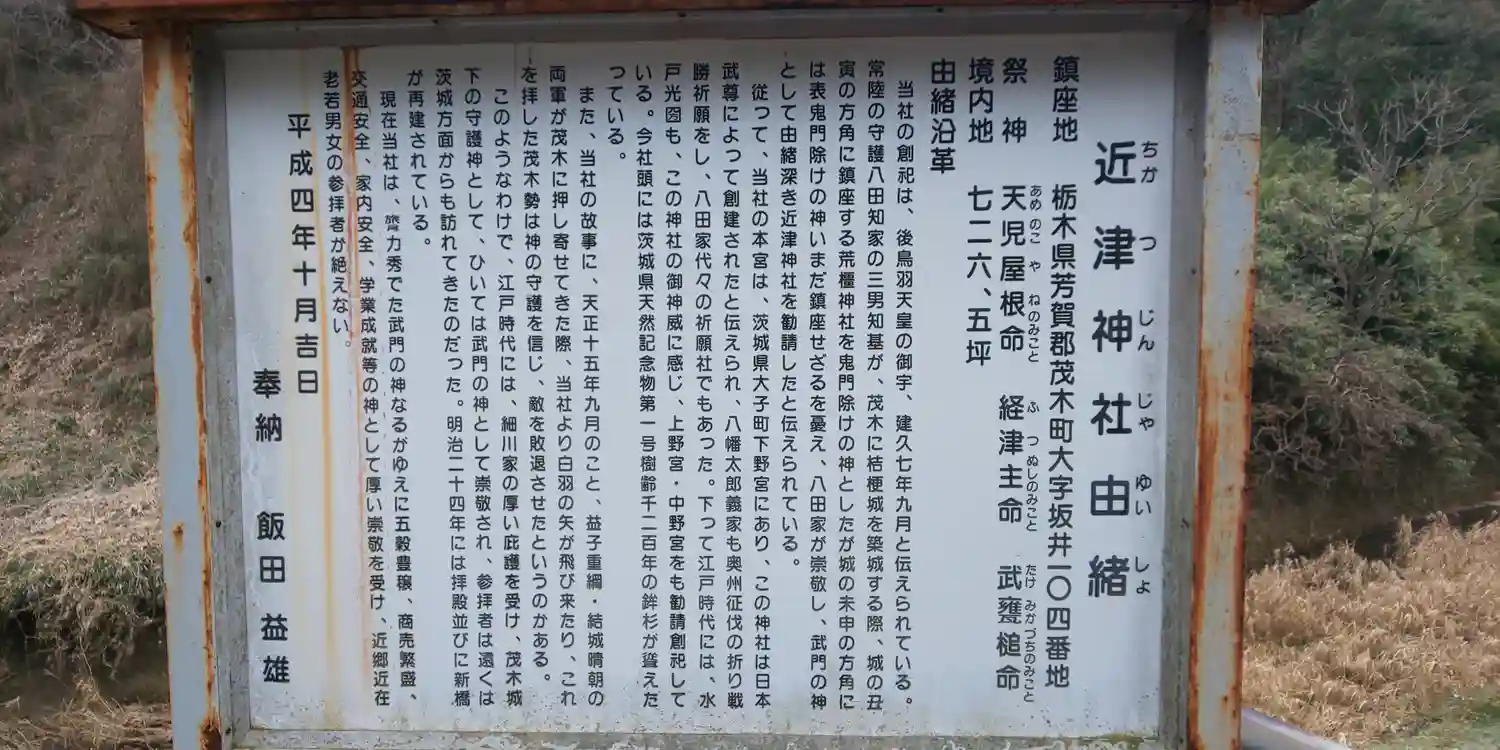 近津神社由緒
ちか つ じん じゃ ゆい しょ
鎮座地 栃木県芳賀郡茂木町大字坂井一〇四番地
祭神 天児屋根命 経津主命 武甕槌命
あめのこ や ねのみこと ふ つぬしのみこと たけ みかづちのみこと
境内地 七二六、五坪
由緒沿革
当社の創祀は、後鳥羽天皇の御宇、建久七年九月と伝えられている。
常陸の守護八田知家の三男知基が、茂木に桔梗城を築城する際、城の丑
寅の方角に鎮座する荒橿神社を鬼門除けの神としたが城の未申の方角に
は表鬼門除けの神いまだ鎮座せざるを憂え、八田家が崇敬し、武門の神
として由緒深き近津神社を勧請したと伝えられている。
従つて、当社の本宮は、茨城県大子町下野宮にあり、この神社は日本
武尊によって創建されたと伝えられ、八幡太郎義家も奥州征伐の折り戦
勝祈願をし、八田家代々の祈願社でもあった。下つて江戸時代には、水
戸光圀も、この神社の御神威に感じ、上野宮・中野宮をも勧請創祀して
いる。今社頭には茨城県天然記念物第一号樹齢千二百年の鉾杉が聳えた
つている。
また、当社の故事に、天正十五年九月のこと、益子重綱・結城晴朝の
両軍が茂木に押し寄せてきた際、当社より白羽の矢が飛び来たり、これ
を拝した茂木勢は神の守護を信じ、敵を敗退させたというのかある。
このようなわけで、江戸時代には、細川家の厚い庇護を受け、茂木城
下の守護神として、ひいては武門の神として崇敬され、参拝者は遠くは
茨城方面からも訪れてきたのだった。明治二十四年には拝殿並びに新橋
が再建されている。
現在当社は、膂力秀でた武門の神なるがゆえに五穀豊穣、商売繁盛、
交通安全、家内安全、学業成就等の神として厚い崇敬を受け、近郷近在
老若男女の参拝者が絶えない。
平成四年十月吉日
奉納 飯田益雄